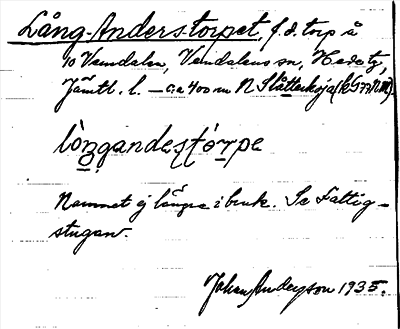 Lång-Anderstorpet, f.d. torp å
10 Vemdalen, Vemdalens sn, Hede tg,
Jämtl. l. — ca 400 m N Slåtterkoja
lòngandestǫrpe
Namnet ej längre i bruk. Se Fattig-
stugan.
Johan Anderzson 1935.